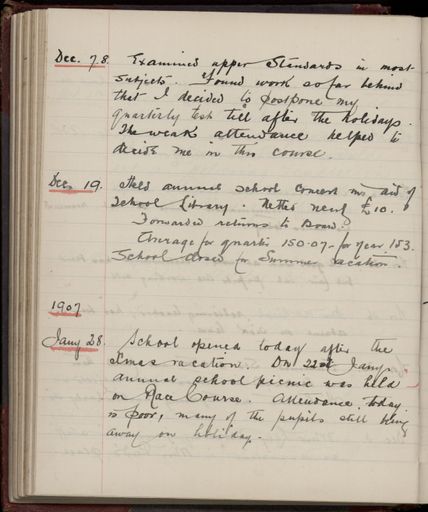 Dec. 7.8. Examined upper Standards in most
subjects. Found work so far behind
that I decided to postpone my
quarterly test till after the holidays.
The weak attendance helped to
decide me in this course.
Dec. 19. Held annual school concert in aid of
School Library. Netted nearly £10.
Forwarded returns to Board.
Average for quarter 150.07 - for year 153.
School closed for Summer vacation.
1907
Jany 28. School opened today after the
Xmas vacation. On 22nd Jany.
annual school picnic was held
on Race Course. Attendance today
is poor, many of the pupils still being
away on holiday.